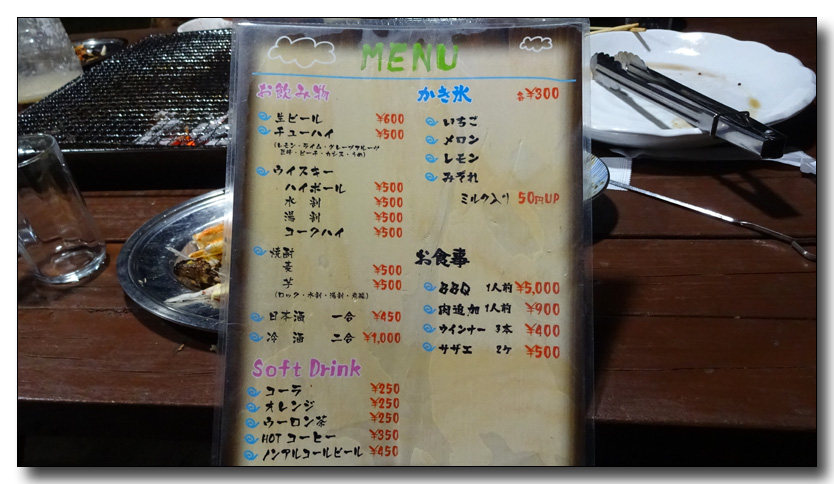 MENU
お飲み物
生ビール ¥600
チューハイ ¥500
(レモン・ライム・グレープフルーツ
巨峰・ピーチ・カシス・うめ)
ウイスキー
ハイボール ¥500
水割 ¥500
湯割 ¥500
コークハイ ¥500
焼酎
麦 ¥500
芋 ¥500
(ロック・水割・湯割・
日本酒 一合 ¥450
冷酒 二合 ¥1,000
Soft Drink
コーラ ¥250
オレンジ ¥250
ウーロン茶 ¥250
HOT コーヒー ¥350
ノンアルコールビール ¥450
かき氷 各¥300
いちご
メロン
レモン
みぞれ
ミルク入り 50円UP
お食事
BBQ 1人前 ¥5,000
肉追加 1人前 ¥900
ウインナー 3本 ¥400
サザエ 2ケ ¥500